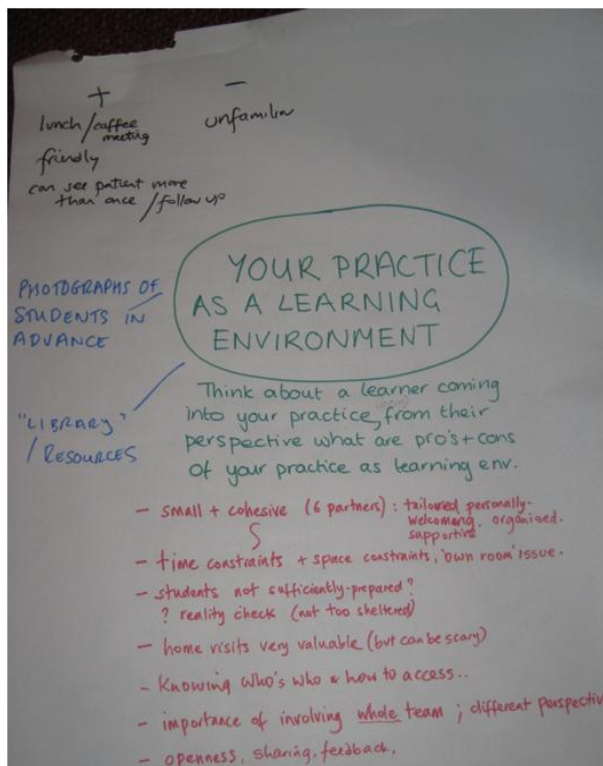 +
lunch/coffee
meeting
friendly
can see patient more
than once / follow up
−
unfamiliar
YOUR PRACTICE
AS A LEARNING
ENVIRONMENT
PHOTOGRAPHS OF
STUDENTS IN
ADVANCE
"LIBRARY"
/ RESOURCES
Think about a learner coming
into your practice, from their
perspective what are pro's + cons
of your practice as learning env.
- small + cohesive (6 partners) : tailored personally.
welcoming, organised.
supportive
- time constraints + space constraints, 'own room' issue.
- students not sufficiently-prepared ?
? reality check (not too sheltered)
- home visits very valuable (but can be scary)
- Knowing who's who & how to access..
- importance of involving whole team ; different perspectiv
- openness, sharing. feedback.